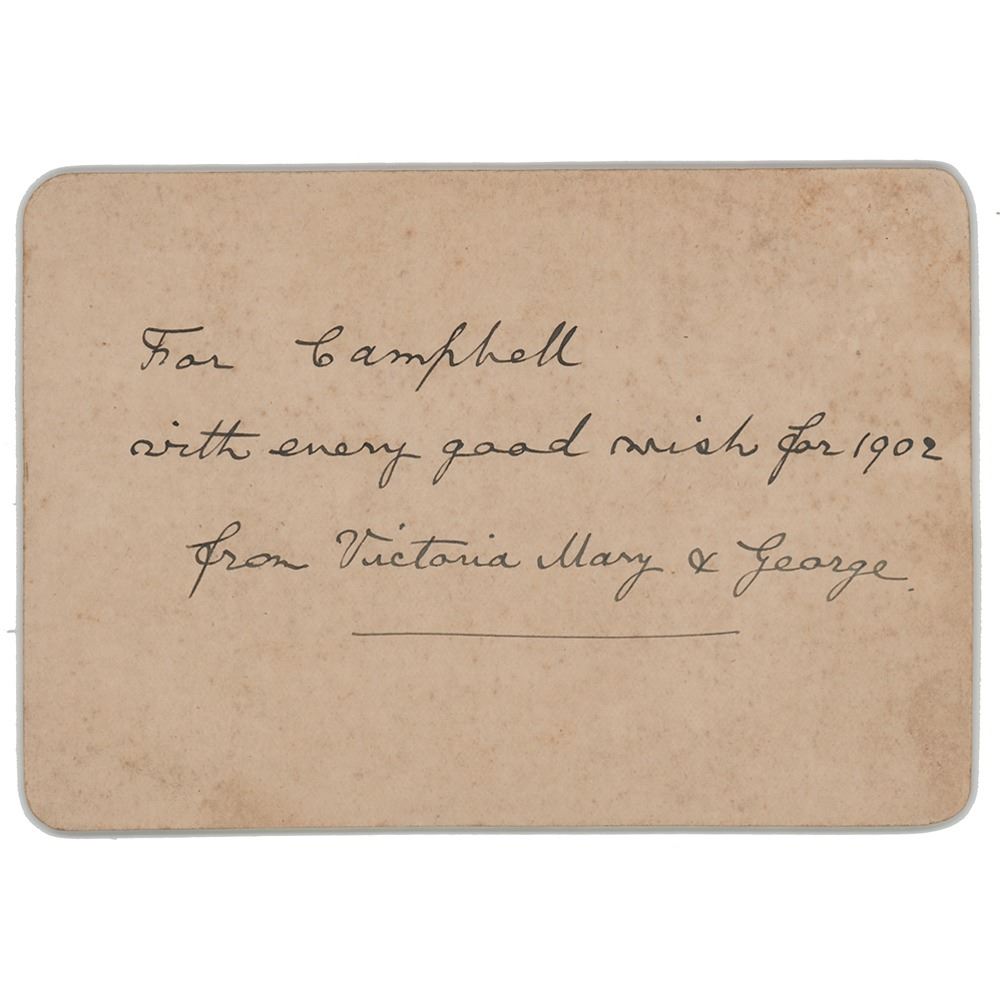 For Campbell
with every good wish for 1902
from Victoria Mary & George.